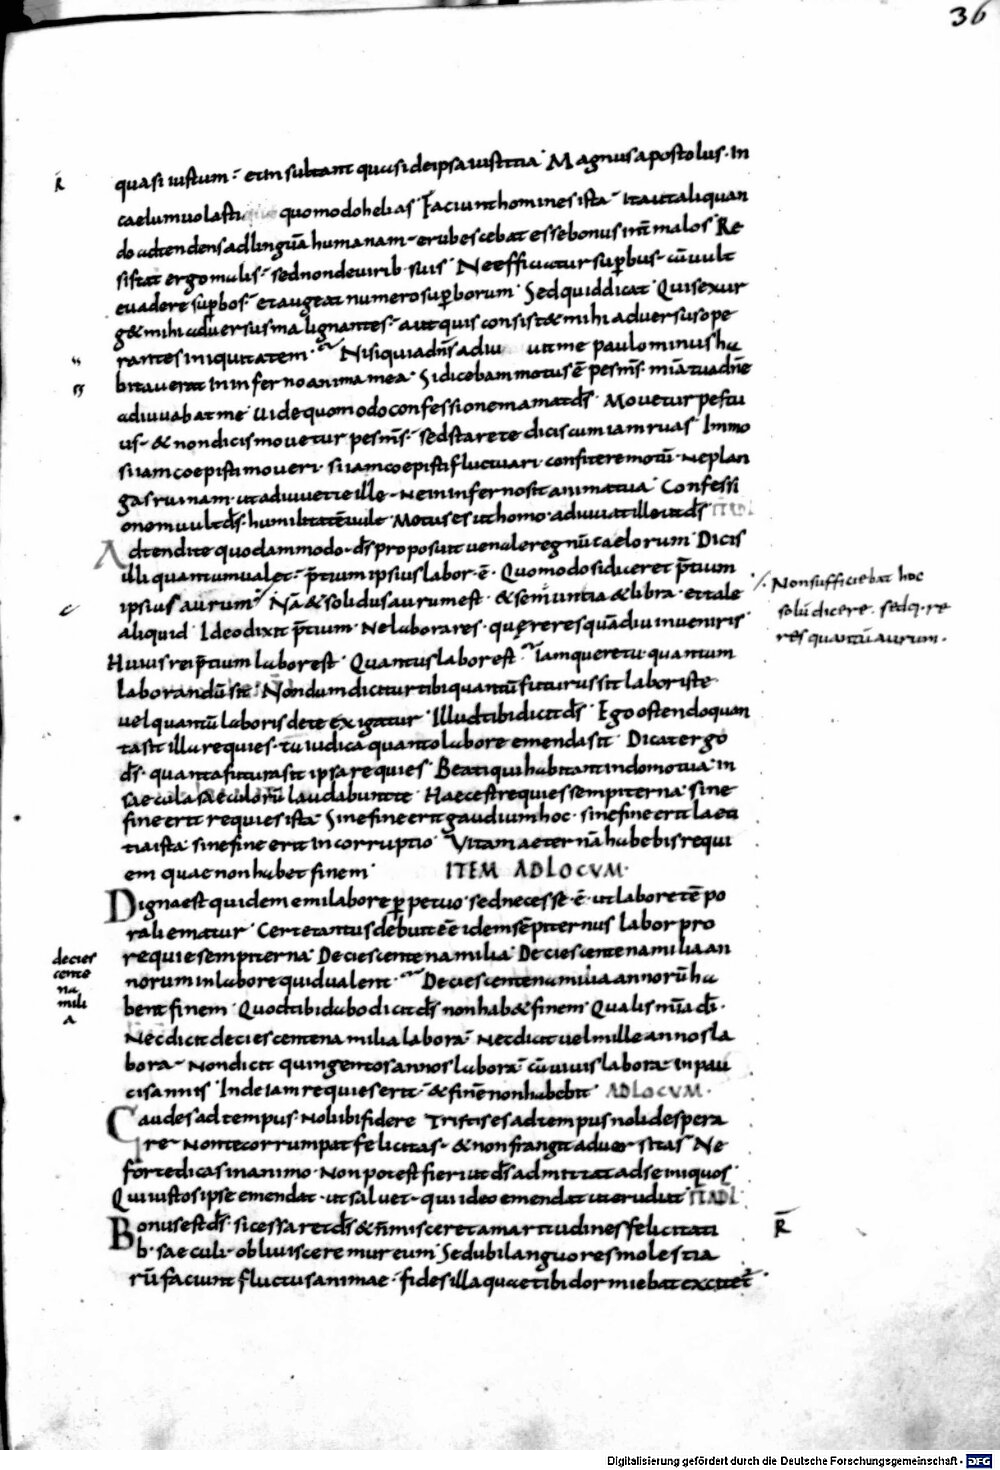 36
R̄
quasi iustum·̄ et insultant quasi de ipsa iustitia· Magnus apostolus· In
caelum uolasti quomodo helias· Faciunt homines ista·̄ ita ut aliquan
do adtendens ad linguā humanam·̄ erubescebat esse bonus int̄ malos· Re
sistat ergo malis·̄ sed non de virib· suis· Ne efficiatur sup̄bus·̄ cū uult
euadere sup̄bos·̄ et augeat numero sup̄borum· Sed quid dicat· Quis exur
g& mihi aduersus malignantes·̄ aut quis consist& mihi aduersus ope
rantes iniquitatem· Nisi quia dn̄s adiu uit me paulo minus ha
bitauerat in inferno anima mea· Si dicebam motus ē pes m̄s· mīa tua dn̄e
adiuuabat me· Uide quomodo confessionem amat d̄s· Mouetur pes tu
us·̄ & non dicis mouetur pes m̄s·̄ sed stare te dicis cum iam ruas· Immo
si iam coepisti moueri· si iam coepisti fluctuari· confitere motū· ne plan
gas ruinam· ut adiuuet te ille·̄ ne in inferno sit anima tua· Confessi
onem uult d̄s· humilitatē uult· Motus es ut homo· adiuuat ille ut d̄s
Adtendite quodammodo· d̄s proposuit uenale regnū caelorum· Dicis
illi quantum ualet·̄ p̄tium ipsius labor·ē· Quomodo si diceret p̄tium
ipsius aurum·̄ Nā & solidus aurum est· & semiuntia & libra· et tale
aliquid· Ideo dixit p̄tium· Ne laborares· quęreres quādiu inueniris·
Huius rei p̄tium labor est· Quantus labor est· Iam quere tu quantum
laborandū sit· Nondum dicitur tibi quantū futurus sit labor iste·
uel quantū laboris de te exigatur· Illud tibi dicit d̄s· Ego ostendo quan
ta sit illa requies· tu iudica quanto labore emenda sit· Dicat ergo
d̄s· quanta futura sit ipsa requies· Beati qui habitant in domo tua· in
saecula saeculorū laudabunt te· Haec est requies sempiterna· sine
fine erit requies ista· Sine fine erit gaudium hoc· sine fine erit laeti
tia ista· sine fine erit incorruptio· Vitam aeternā habebis requi
em quae non habet finem· ITEM ADLOCVM·
Digna est quidem emi labore perpetuo· sed necesse·ē· ut labore tēpo
rali ematur· Certe tantus debuit eē idem sēpiternus labor pro
requie sempiterna· Decies centena milia· Decies centena milia an
norum in labore quid ualent· Decies centena milia annorū ha
bent finem· Quod tibi dabo dicit d̄s non hab& finem· Qualis mīa dī·
Nec dicit decies centena milia labora·̄ Nec dicit uel mille annos la
bora·̄ Non dicit quingentos annos labora·̄ cū uiuis labora·̄ in pau
cis annis· Inde iam requies erit·̄ & finē non habebit· ADLOCVM·
Gaudes ad tempus· noli ibi fidere· Tristis es ad tempus noli despera
re·̄ Non te corrumpat felicitas·̄ & non frangat aduersitas· Ne
forte dicas in animo· Non potest fieri ut d̄s admittat ad se iniquos·
Qui iustos ipse emendat· ut saluet·̄ qui ideo emendat ut erudiat
Bonus est d̄s· si cessaret d̄s & n̄ misceret amaritudines felicitati
b· saeculi·̄ obliuisceremur eum· Sed ubi languores molestia
rū faciunt fluctus animae·̄ fides illa quae tibi dormiebat excitet̄·
Non sufficiebat hoc
solū dicere· sed q·re
res quantū aurum·
decies
cente
na
mili
a
R̄
Digitalisierung gefördert durch die Deutsche Forschungsgemeinschaft - DFG